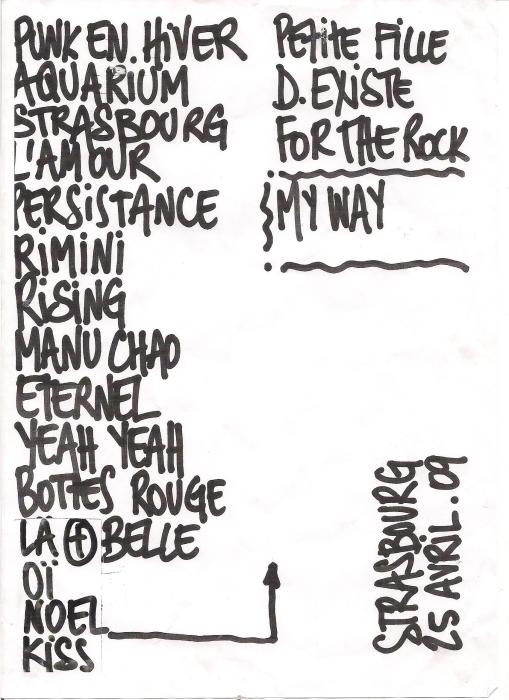 PUNK EN. HIVER
AQUARIUM
STRASBOURG
L'AMOUR
PERSISTANCE
RIMINI
RISING
MANU CHAO
ETERNEL
YEAH YEAH
BOTTES ROUGE
LA + BELLE
OÏ
NOEL
KISS
PETITE FILLE
D. EXISTE
FOR THE ROCK
MY WAY
STRASBOURG
25 AVRIL. 09